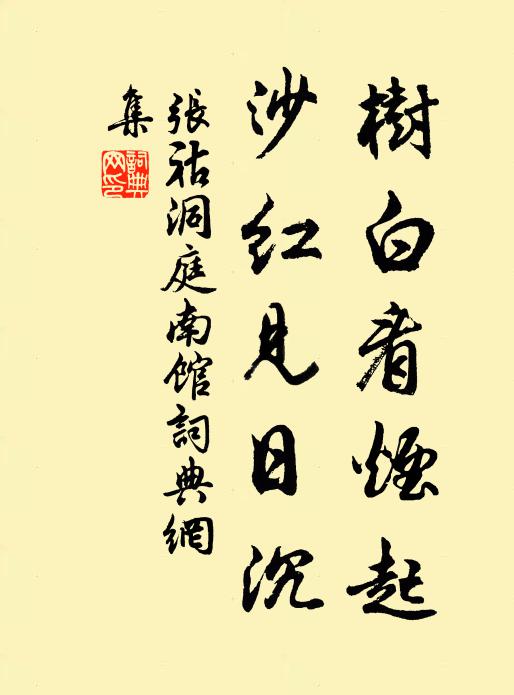 樹白看煙起
沙紅見日沉
張祜洞庭南館詞典網
集
詞典網印